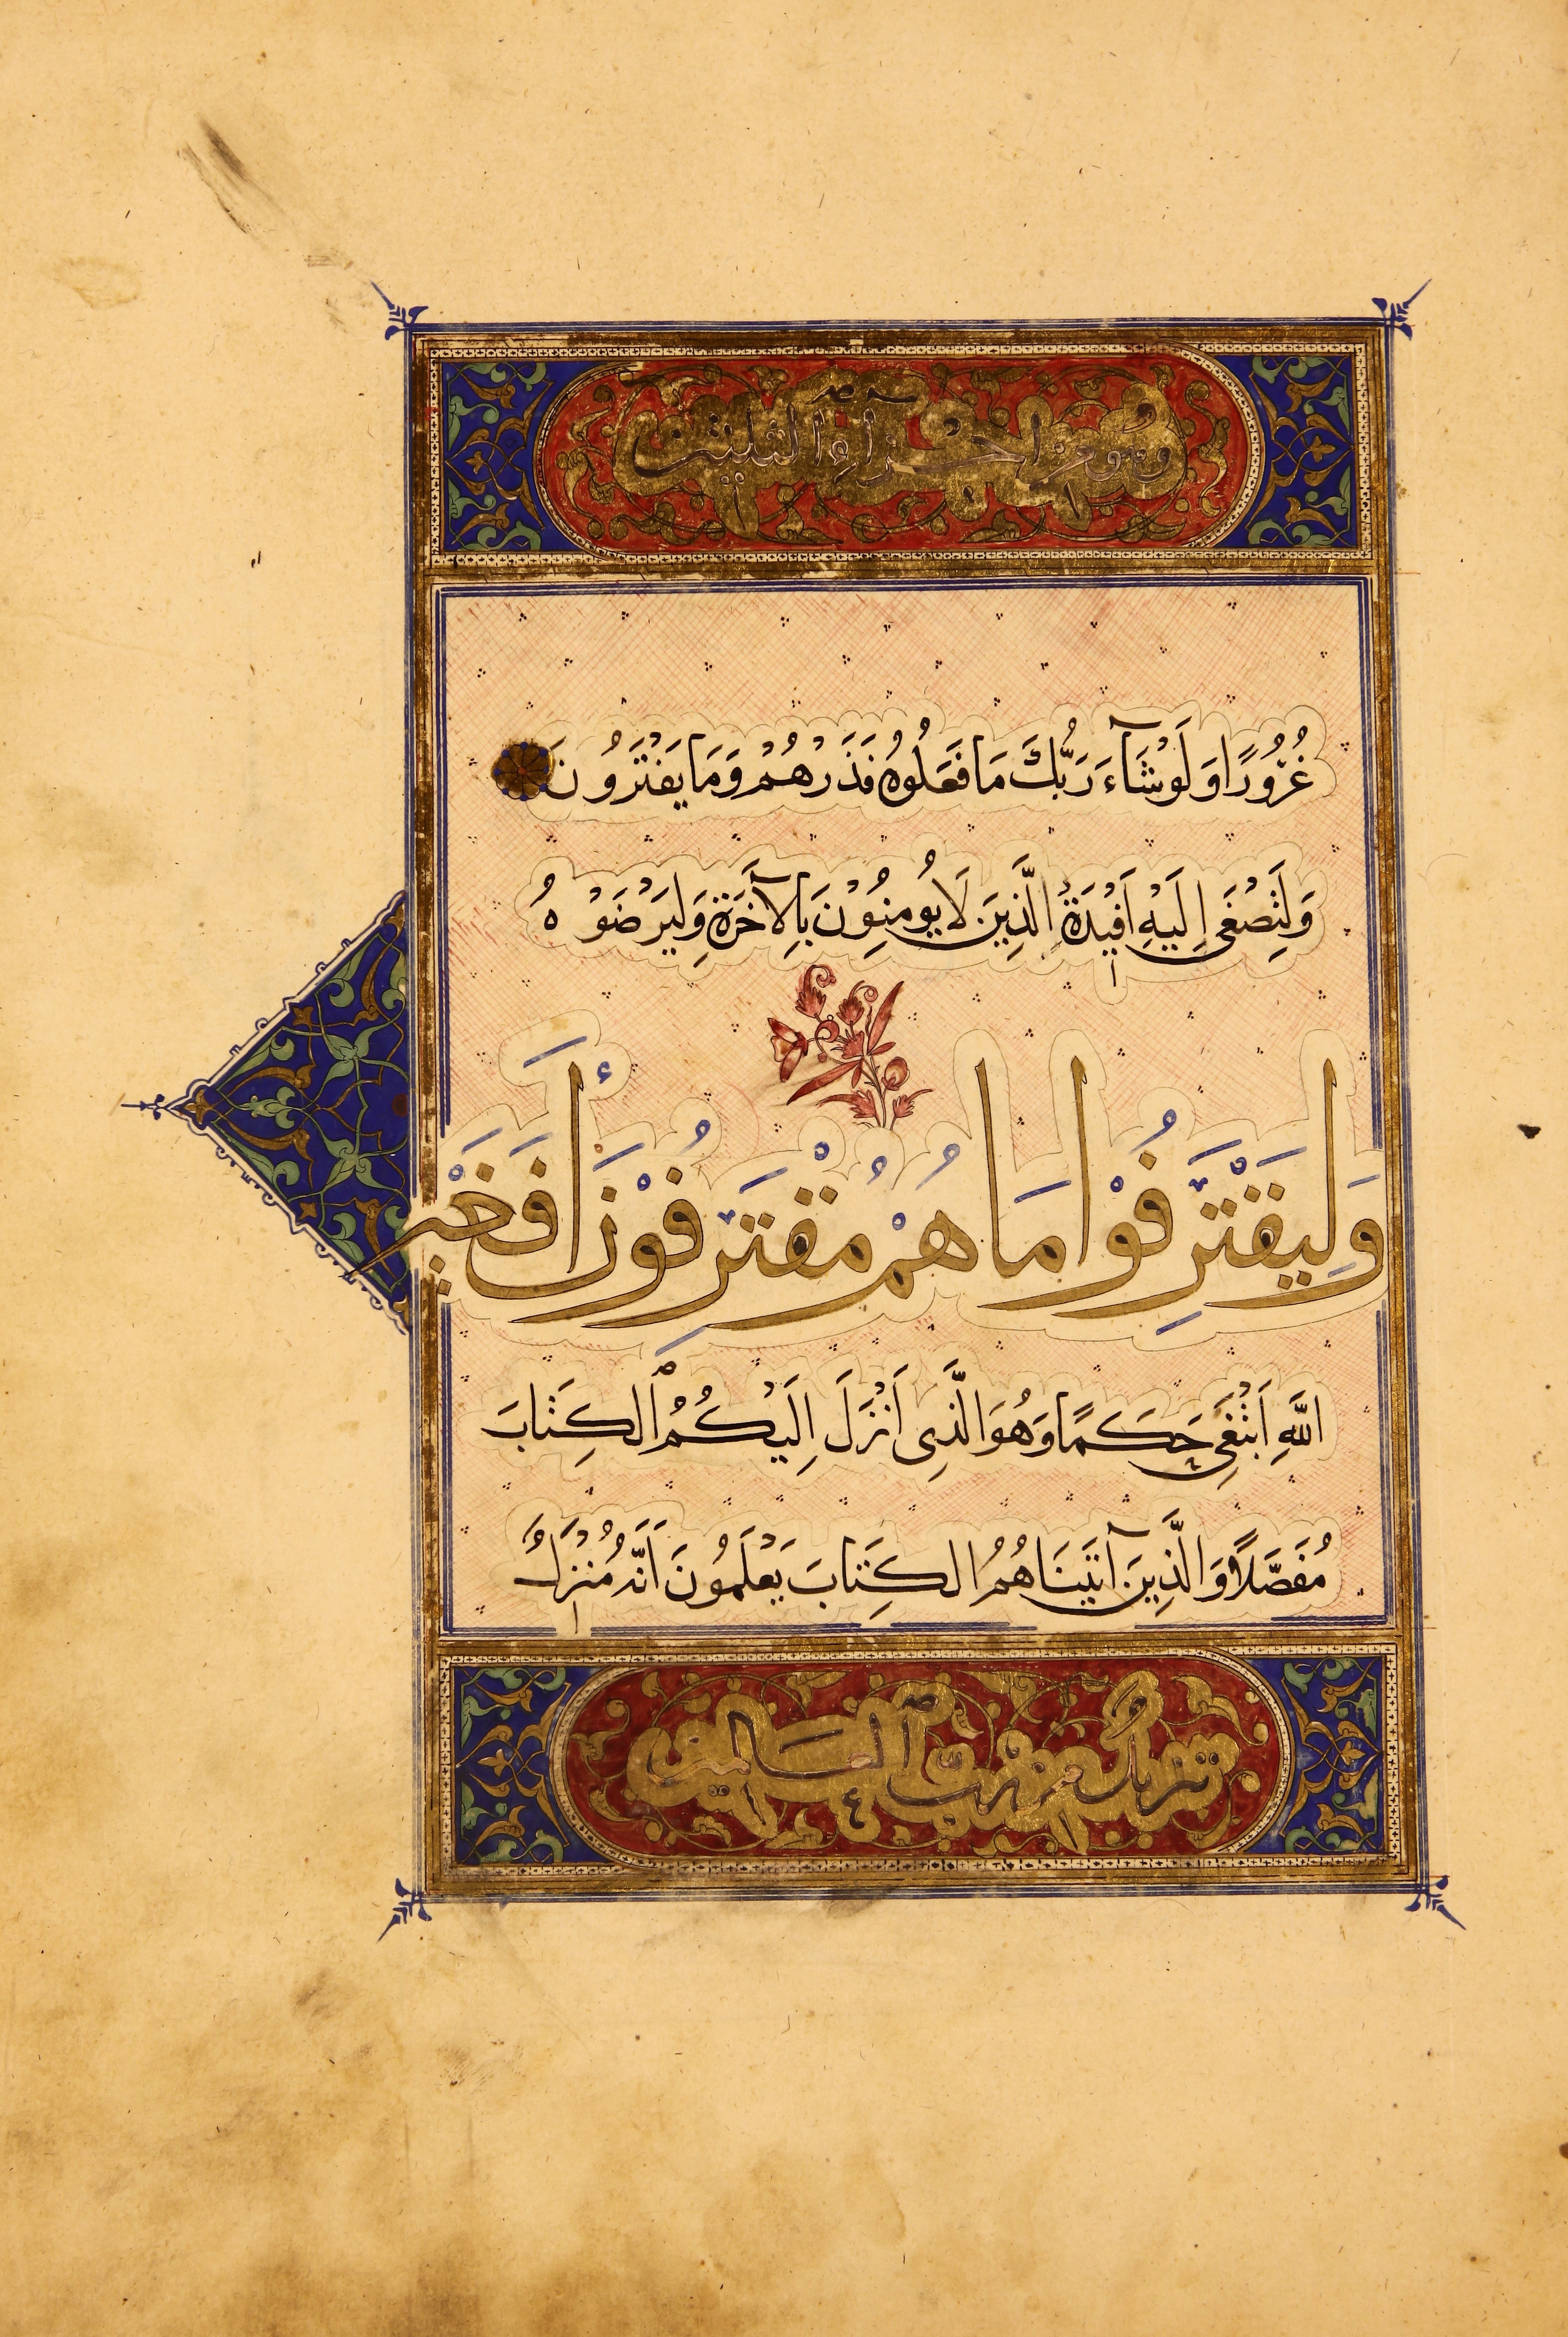 وهو من اجزاء الثلثين
غُرُورًا وَلَوْ شَآءَ رَبُّكَ مَا فَعَلُوهُ فَذَرْهُمْ وَمَا يَفْتَرُونَ
وَلِتَصْغَى اِلَيْهِ اَفْيِدَةُ الَّذِينَ لَا يُومِنُوْنَ بِالآخَرَةِ وَلِيَرْضَوْهُ
وَلِيَقْتَرِفُوْا مَا هُمْ مُقْتَرِفُوْنَ أَفَغَيْرَ
اللَّهِ اَبْتَغِى حَكَمًا وَهُوَ الَّذِى اَنْزَلَ اِلَيْكُمُ الكِتَابَ
مُفَصَّلًا وَالَّذِينَ آتَيْنَاهُمُ الكِتَابَ يَعْلَمُونَ اَنَّهُ مُنْزَلٌ
تنزيلٌ من ربّ العَالمين